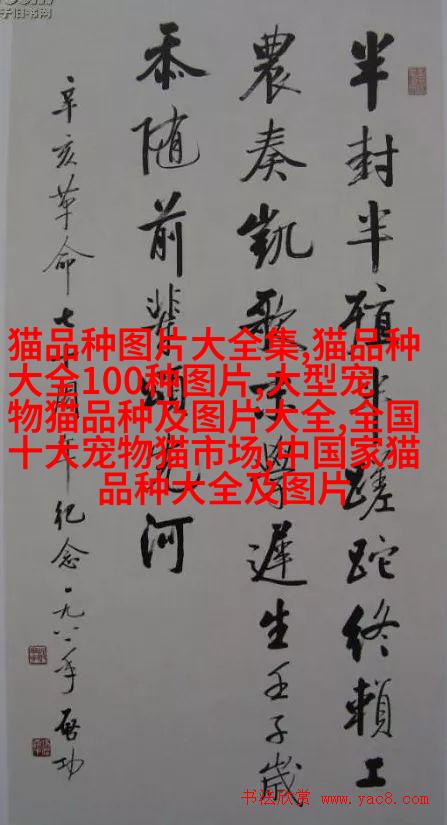 子旧书网
半封半殖半蹉跎終賴工
農奏凱歌末學遲生壬子歲
忝随前輩頌河
辛亥革命七十周年纪念一九八一年启功
猫品种图片大全集,猫品种
大全100种图片,大型宠
物猫品种及图片大全,全国
十大宠物猫市场,中国家猫
品种大全及图片
书法欣赏 www.yac8.com